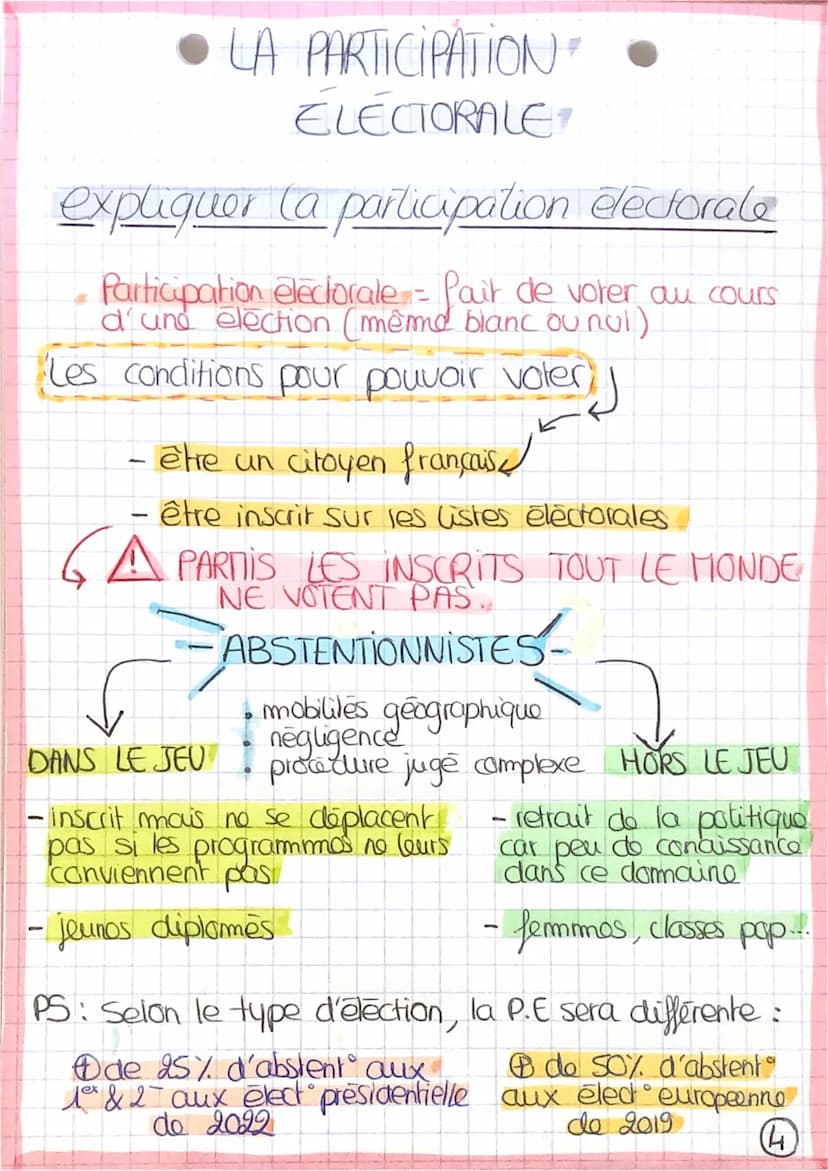 LA PARTICIPATION
ÉLÉCTORALE
expliquer la participation éléctorale
. Participation éléctorale = fait de voter au cours
d'une éléction (même blanc ou nul)
Les conditions pour pouvoir voter
- être un citoyen français
- être inscrit sur les listes éléctorales
⚠ PARMIS LES INSCRITS TOUT LE MONDE
NE VOTENT PAS.
- ABSTENTIONNISTES -
. mobilités géographique
. négligence
. procédure jugé complexe
DANS LE JEU
- inscrit mais ne se déplacent
pas si les programmes ne leurs
conviennent pas
- jeunes diplômés
HORS LE JEU
- retrait de la politique
car peu de conaissance
dans ce dommaine
- femmmes, classes pop...
PS : Selon le type d'éléction, la P.E sera différente :
⊕ de 25% d'abstent° aux
1er & 2- aux élect° présidentielle
de 2022
⊕ de 50% d'abstent°
aux élect° européenne
de 2019
4